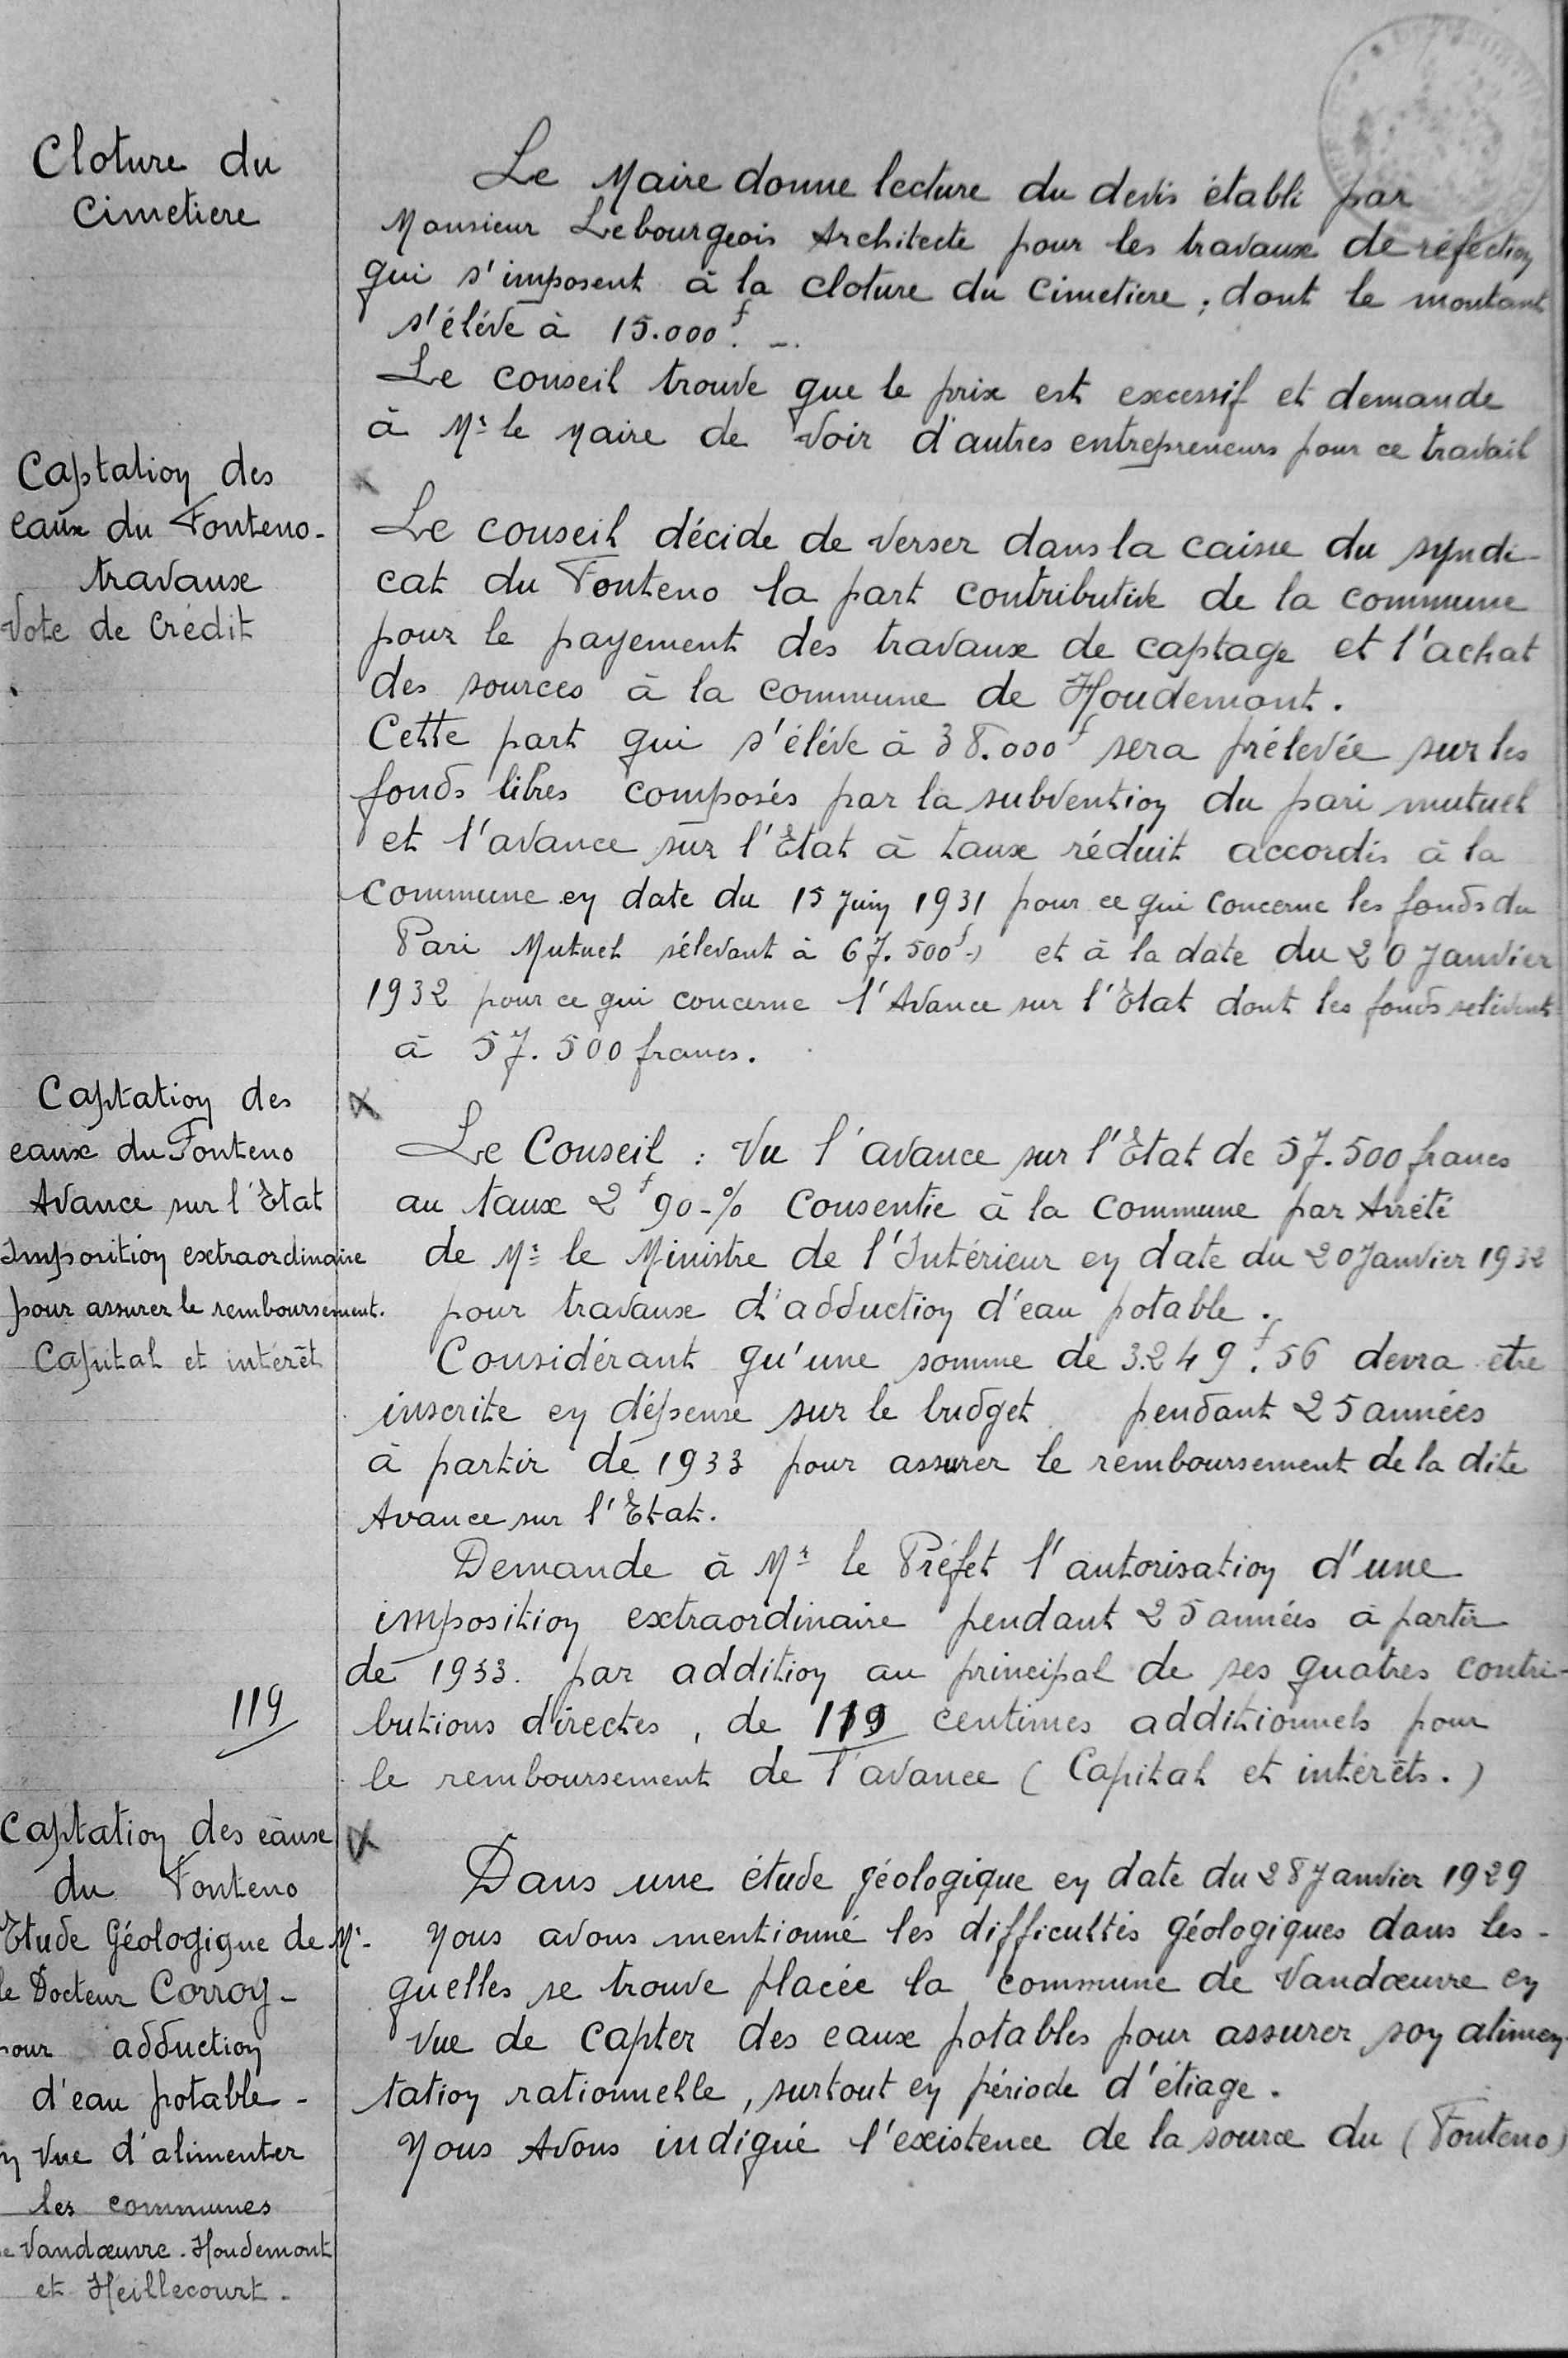 Cloture du
Cimetiere
Le Maire donne lecture du devis établi par
Monsieur Lebourgeois Architecte pour les travaux de réfection
qui s'imposent à la cloture du Cimetiere ; dont le montant
s'éléve à 15.000f. -.
Le conseil trouve que le prix est excessif et demande
à Mr le Maire de voir d'autres entrepreneurs pour ce travail
Captation des
eaux du Fonteno -
travaux
Vote de Crédit
Le conseil décide de verser dans la caisse du syndi-
cat du Fonteno la part contributive de la commune
pour le payement des travaux de captage et l'achat
des sources à la commune de Houdemont.
Cette part qui s'éléve à 38.000f sera prélevée sur les
fonds libres composés par la subvention du pari mutuel
et l'avance sur l'Etat à taux réduit accordés à la
commune en date du 15 Juin 1931 pour ce qui concerne les fonds du
Pari Mutuel sélevant à 67.500f-, et à la date du 20 Janvier
1932 pour ce qui concerne l'Avance sur l'Etat dont les fonds sélèvent
à 57.500 francs.
Captation des
eaux du Fonteno
Avance sur l'Etat
Imposition extraordinaire
pour assurer le remboursement.
Capital et intérêt
Le Conseil : Vu l'avance sur l'Etat de 57.500 francs
au taux 2f90-% Consentie à la Commune par Arrêté
de Mr le Ministre de l'Intérieur en date du 20 Janvier 1932
pour travaux d'adduction d'eau potable.
Considérant qu'une somme de 3.249f.56 devra être
inscrite en dépense sur le budget pendant 25 années
à partir de 1933 pour assurer le remboursement de la dite
Avance sur l'Etat.
Demande à Mr le Préfet l'autorisation d'une
imposition extraordinaire pendant 25 années à partir
de 1933. par addition au principal de ses quatres contri-
119
butions directes, de 119 centimes additionnels pour
le remboursement de l'avance ( Capital et intérêts. )
Captation des eaux
du Fonteno
Etude Géologique de Mr-
le Docteur Corroy -
pour adduction
d'eau potable -
en vue d'alimenter
les communes
de Vandœuvre. Houdemont
et Heillecourt -
Dans une étude géologique en date du 28 Janvier 1929
nous avons mentionné les difficultés géologiques dans les-
quelles se trouve placée la commune de Vandœuvre en
vue de capter des eaux potables pour assurer son alimen
tation rationnelle, surtout en période d'étiage.
Nous Avons indiqué l'existence de la source du ( Fonteno )